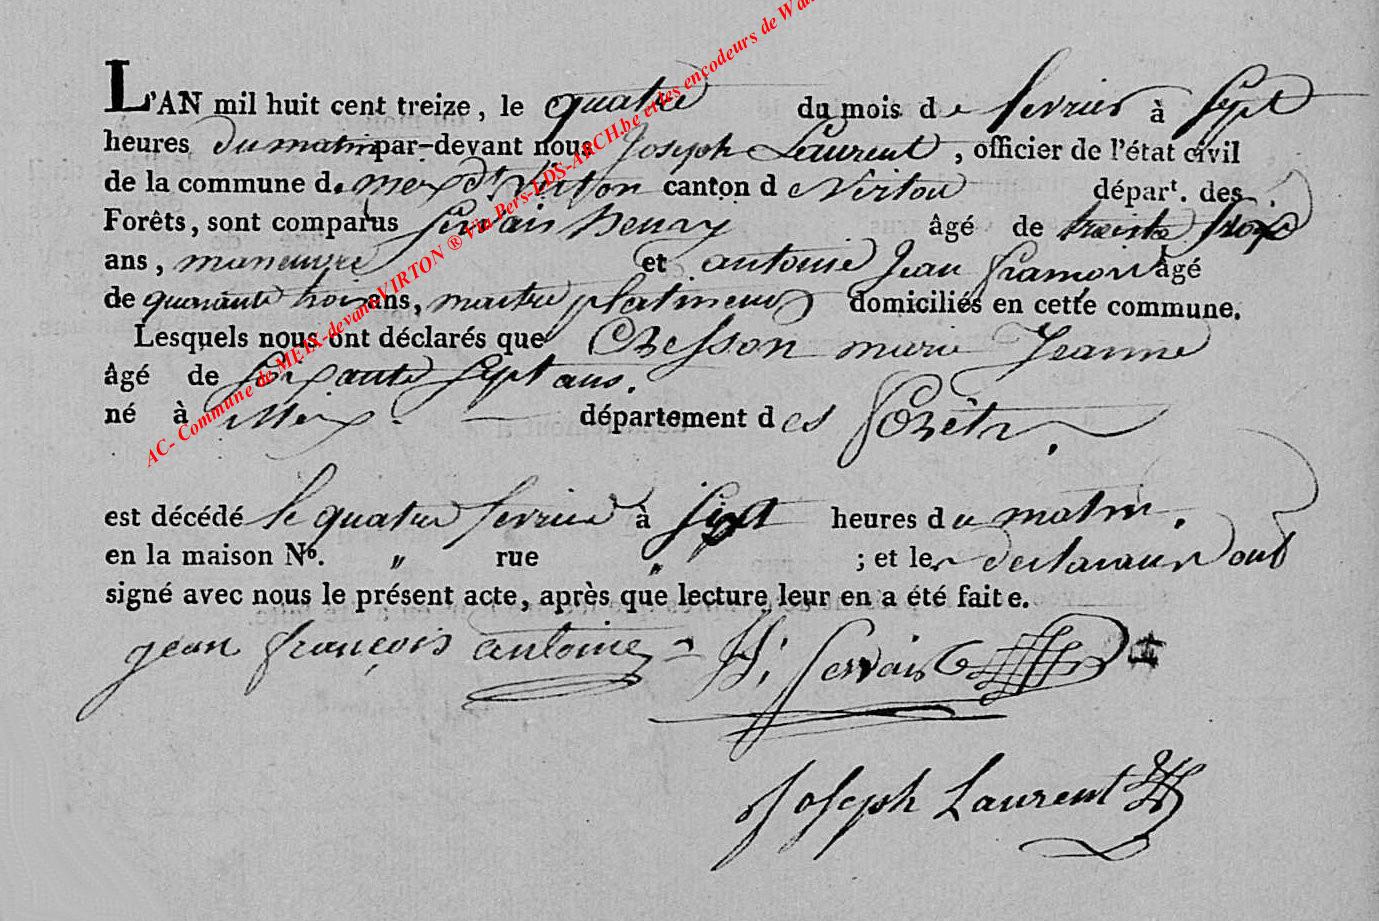 L'AN mil huit cent treize, le quatre du mois de fevrier à sept
heures du matin par-devant nous Joseph Laurent, officier de l'état civil
de la commune de meix dt Virton canton de Virton départ. des
Forêts, sont comparus Servais henry âgé de trente
ans, maneuvre et antoine Jean francois âgé
de quarante trois ans, maitre platineur domiciliés en cette commune.
Lesquels nous ont déclarés que Chesson marie Jeanne
âgé de soixante sept ans.
né à Meix département des forêts.
est décédé le quatre fevrier à sept heures du matin.
en la maison No. " rue " ; et les declarans ont
signé avec nous le présent acte, après que lecture leur en a été faite.
jean françois antoine H; servais
Joseph Laurent
AC- Commune de MEIX-devant-VIRTON ® Via Pers-LDS-ARCH.be et les encodeurs de